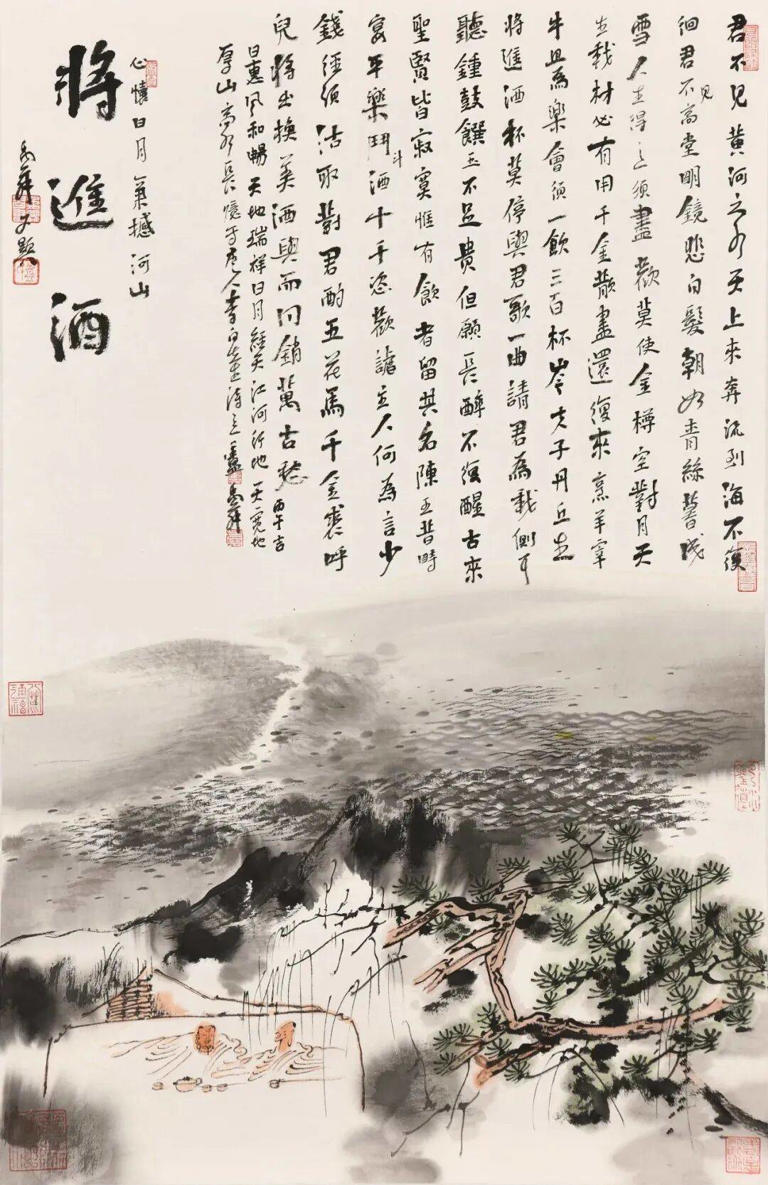 君不見黃河之水天上來奔流到海不復
徊君不見高堂明鏡悲白髮朝如青絲暮成
雪人生得意須盡歡莫使金樽空對月天
生我材必有用千金散盡還復來烹羊宰
牛且為樂會須一飲三百杯岑夫子丹丘生
將進酒杯莫停與君歌一曲請君為我側耳
聽鍾鼓饌玉不足貴但願長醉不復醒古來
聖賢皆寂寞惟有飲者留其名陳王昔時
宴平樂鬥斗酒十千恣歡謔主人何為言少
錢徑須沽取對君酌五花馬千金裘呼
兒將出換美酒與爾同銷萬古愁 丙午吉
日惠風和暢天地瑞祥日月經天江河行地天寬地
厚山高水長憶于唐人李白詩意
心懷日月氣撼河山
將進酒
又題